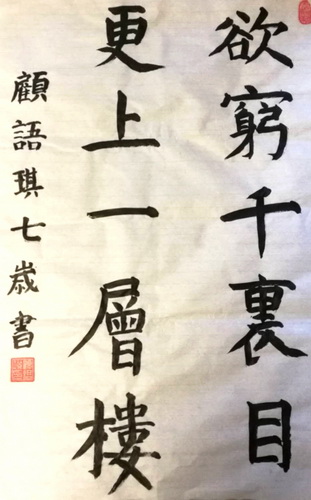 欲窮千裏目
更上一層樓
顧語琪七歲書